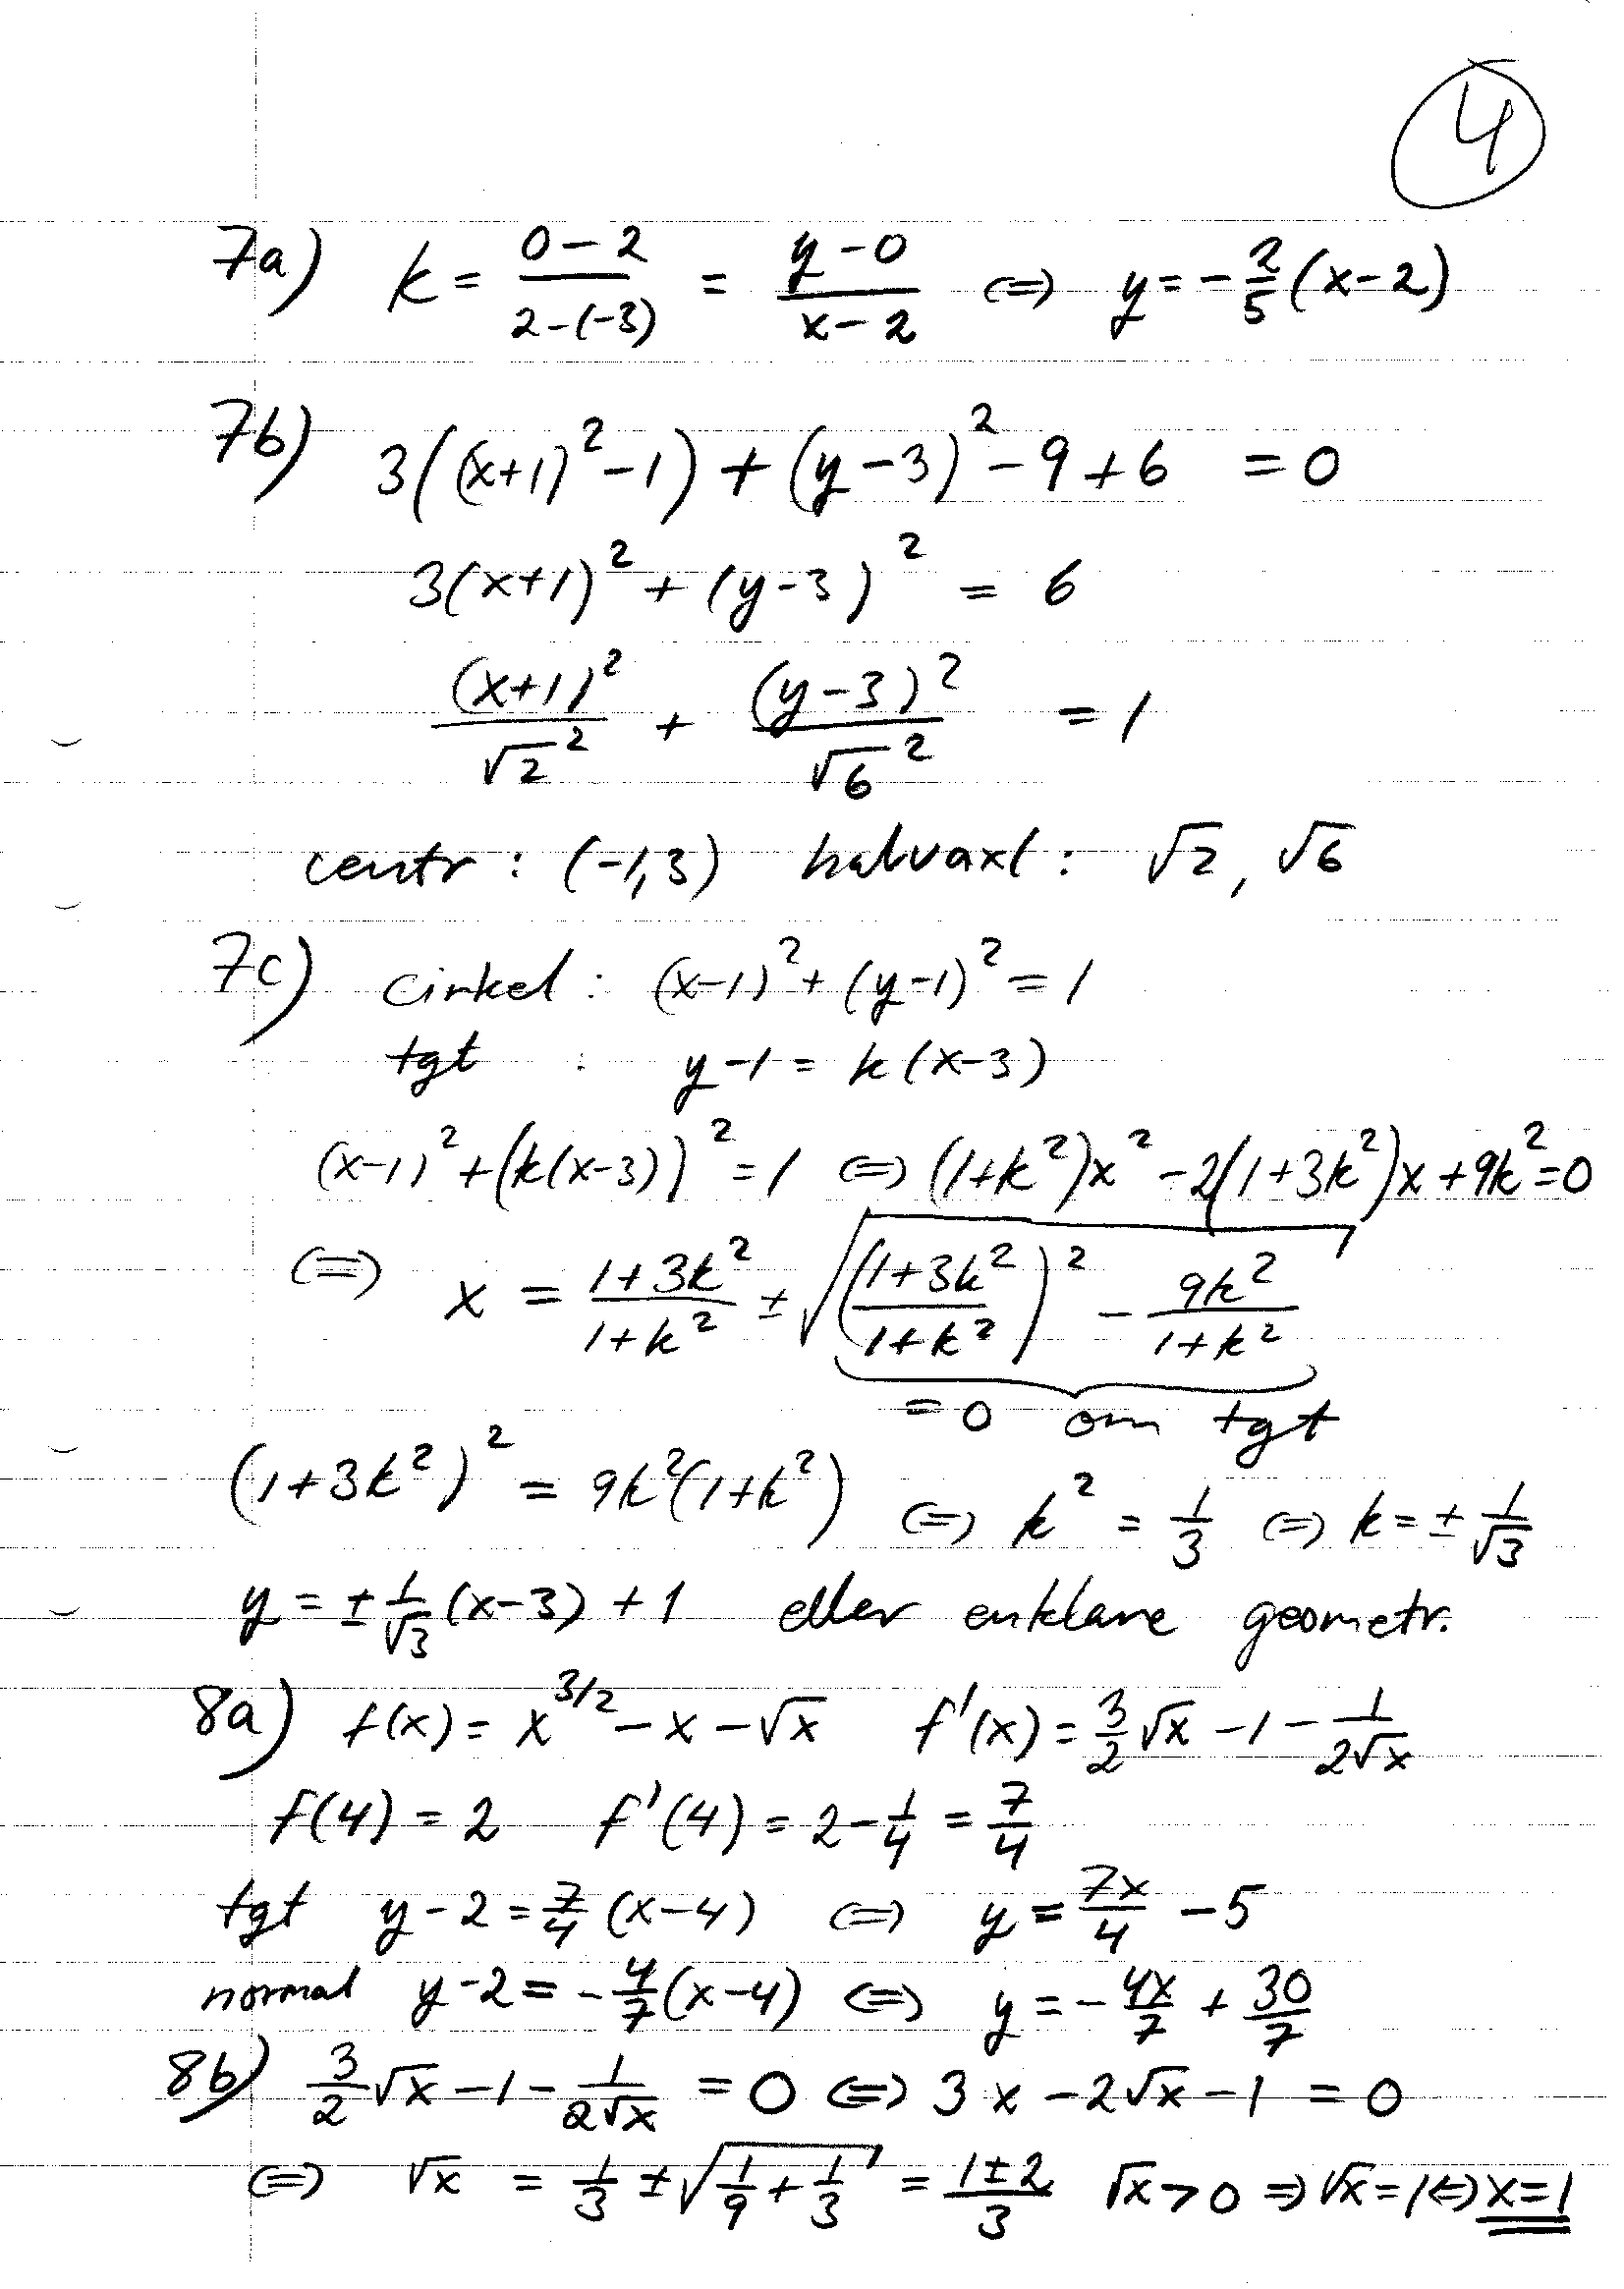 4
7a) k = (0-2)/(2-(-3)) = (y-0)/(x-2) ⇔ y = -2/5 (x-2)
7b) 3((x+1)² -1) + (y-3)² -9 +6 = 0
3(x+1)² + (y-3)² = 6
(x+1)²/√2² + (y-3)²/√6² = 1
centr : (-1,3) halvaxl : √2, √6
7c) cirkel : (x-1)² + (y-1)² = 1
tgt : y-1 = k(x-3)
(x-1)² + (k(x-3))² = 1 ⇔ (1+k²)x² - 2(1+3k²)x + 9k² = 0
⇔ x = (1+3k²)/(1+k²) ± √(((1+3k²)/(1+k²))² - 9k²/(1+k²))
= 0 om tgt
(1+3k²)² = 9k²(1+k²) ⇔ k² = 1/3 ⇔ k = ± 1/√3
y = ± 1/√3 (x-3) + 1 eller enklare geometr.
8a) f(x) = x^{3/2} - x - √x f'(x) = 3/2 √x - 1 - 1/(2√x)
f(4) = 2 f'(4) = 2 - 1/4 = 7/4
tgt y-2 = 7/4 (x-4) ⇔ y = 7x/4 - 5
normal y-2 = -4/7 (x-4) ⇔ y = -4x/7 + 30/7
8b) 3/2 √x - 1 - 1/(2√x) = 0 ⇔ 3x - 2√x - 1 = 0
⇔ √x = 1/3 ± √(1/9 + 1/3) = (1±2)/3 √x > 0 ⇒ √x = 1 ⇔ x = 1